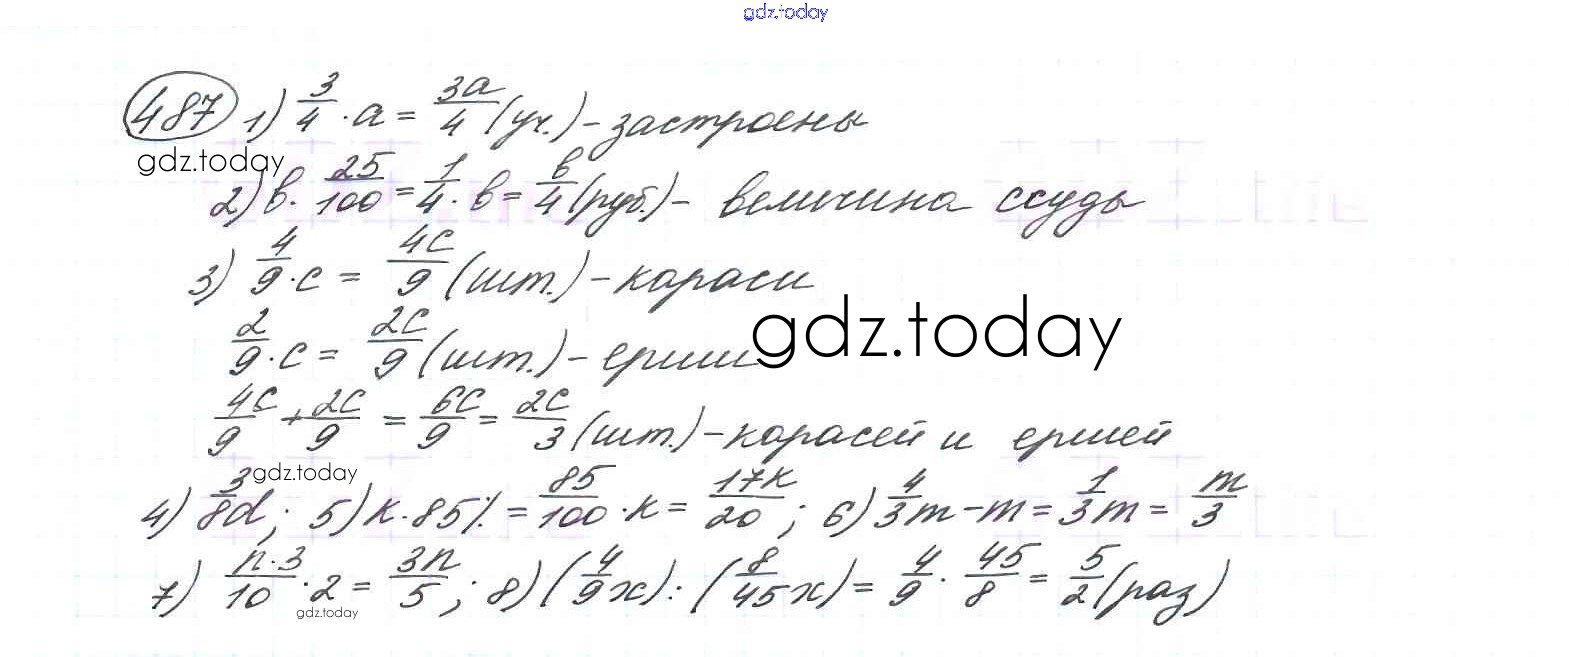 gdz.today
487 1) 3/4 · a = 3a/4 (уч.) – застроены
gdz.today
2) b · 25/100 = 1/4 · b = b/4 (руб.) – величина ссуды
3) 4/9 · c = 4c/9 (шт.) – караси
gdz.today
2/9 · c = 2c/9 (шт.) – ерши
4c/9 + 2c/9 = 6c/9 = 2c/3 (шт.) – карасей и ершей
gdz.today
4) 3/8 d; 5) k · 85% = 85/100 · k = 17k/20; 6) 4/3 m – m = 1/3 m = m/3
7) n·3/10 · 2 = 3n/5; 8) (4/9 x) : (8/45 x) = 4/9 · 45/8 = 5/2 (раз)
gdz.today